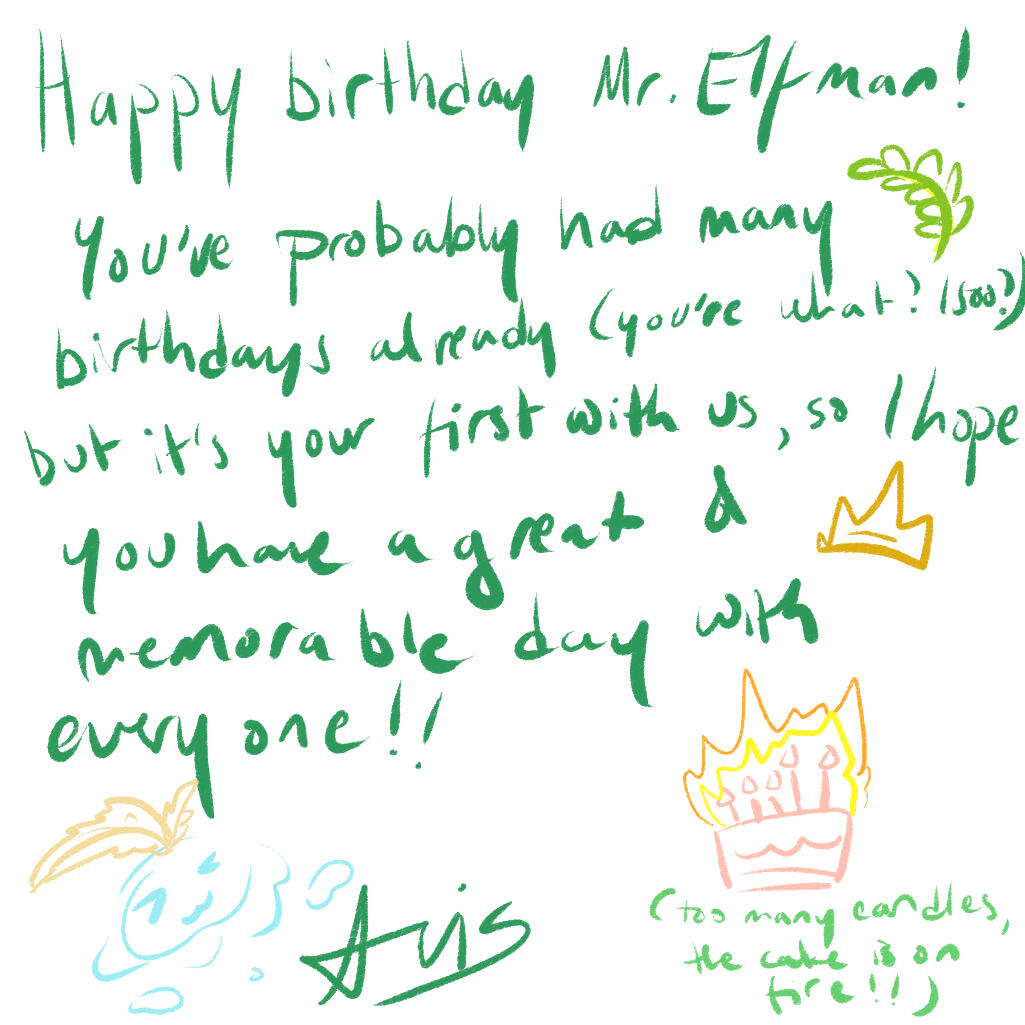 Happy birthday Mr. Elfman!
You've probably had many
birthdays already (you're what? 1500?)
but it's your first with us, so I hope
you have a great &
memorable day with
everyone!!
Avis
(too many candles,
the cake is on
fire!!)